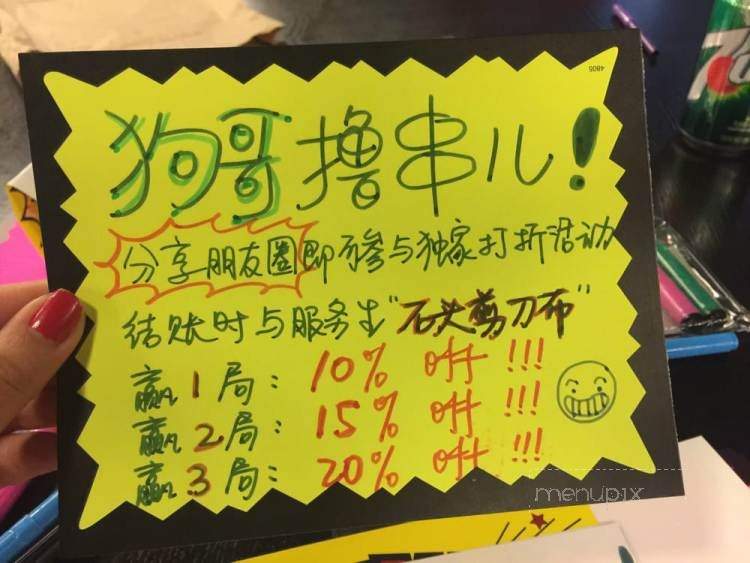 4805
狗哥撸串儿!
分享朋友圈即可参与独家打折活动
结账时与服务生"石头剪刀布"
赢1局: 10% off !!!
赢2局: 15% off !!!
赢3局: 20% off !!!
menupix
7